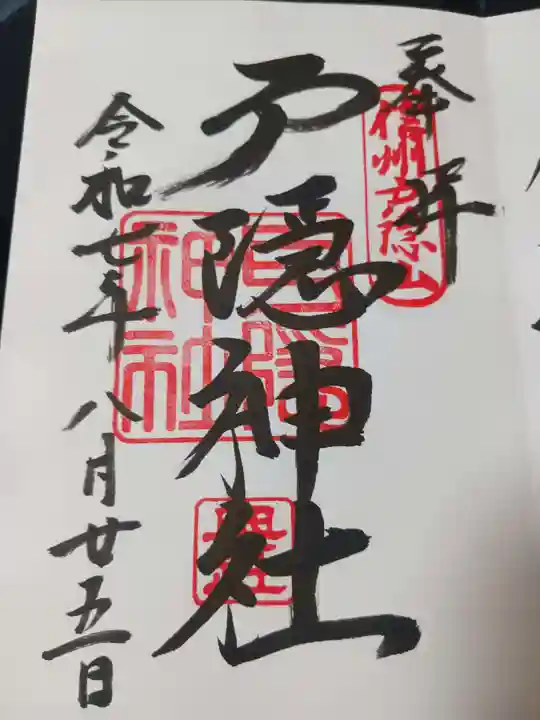 奉拝
信州戸隠山
戸隠神社
戸隠神社
奥社
令和七年八月廿五日